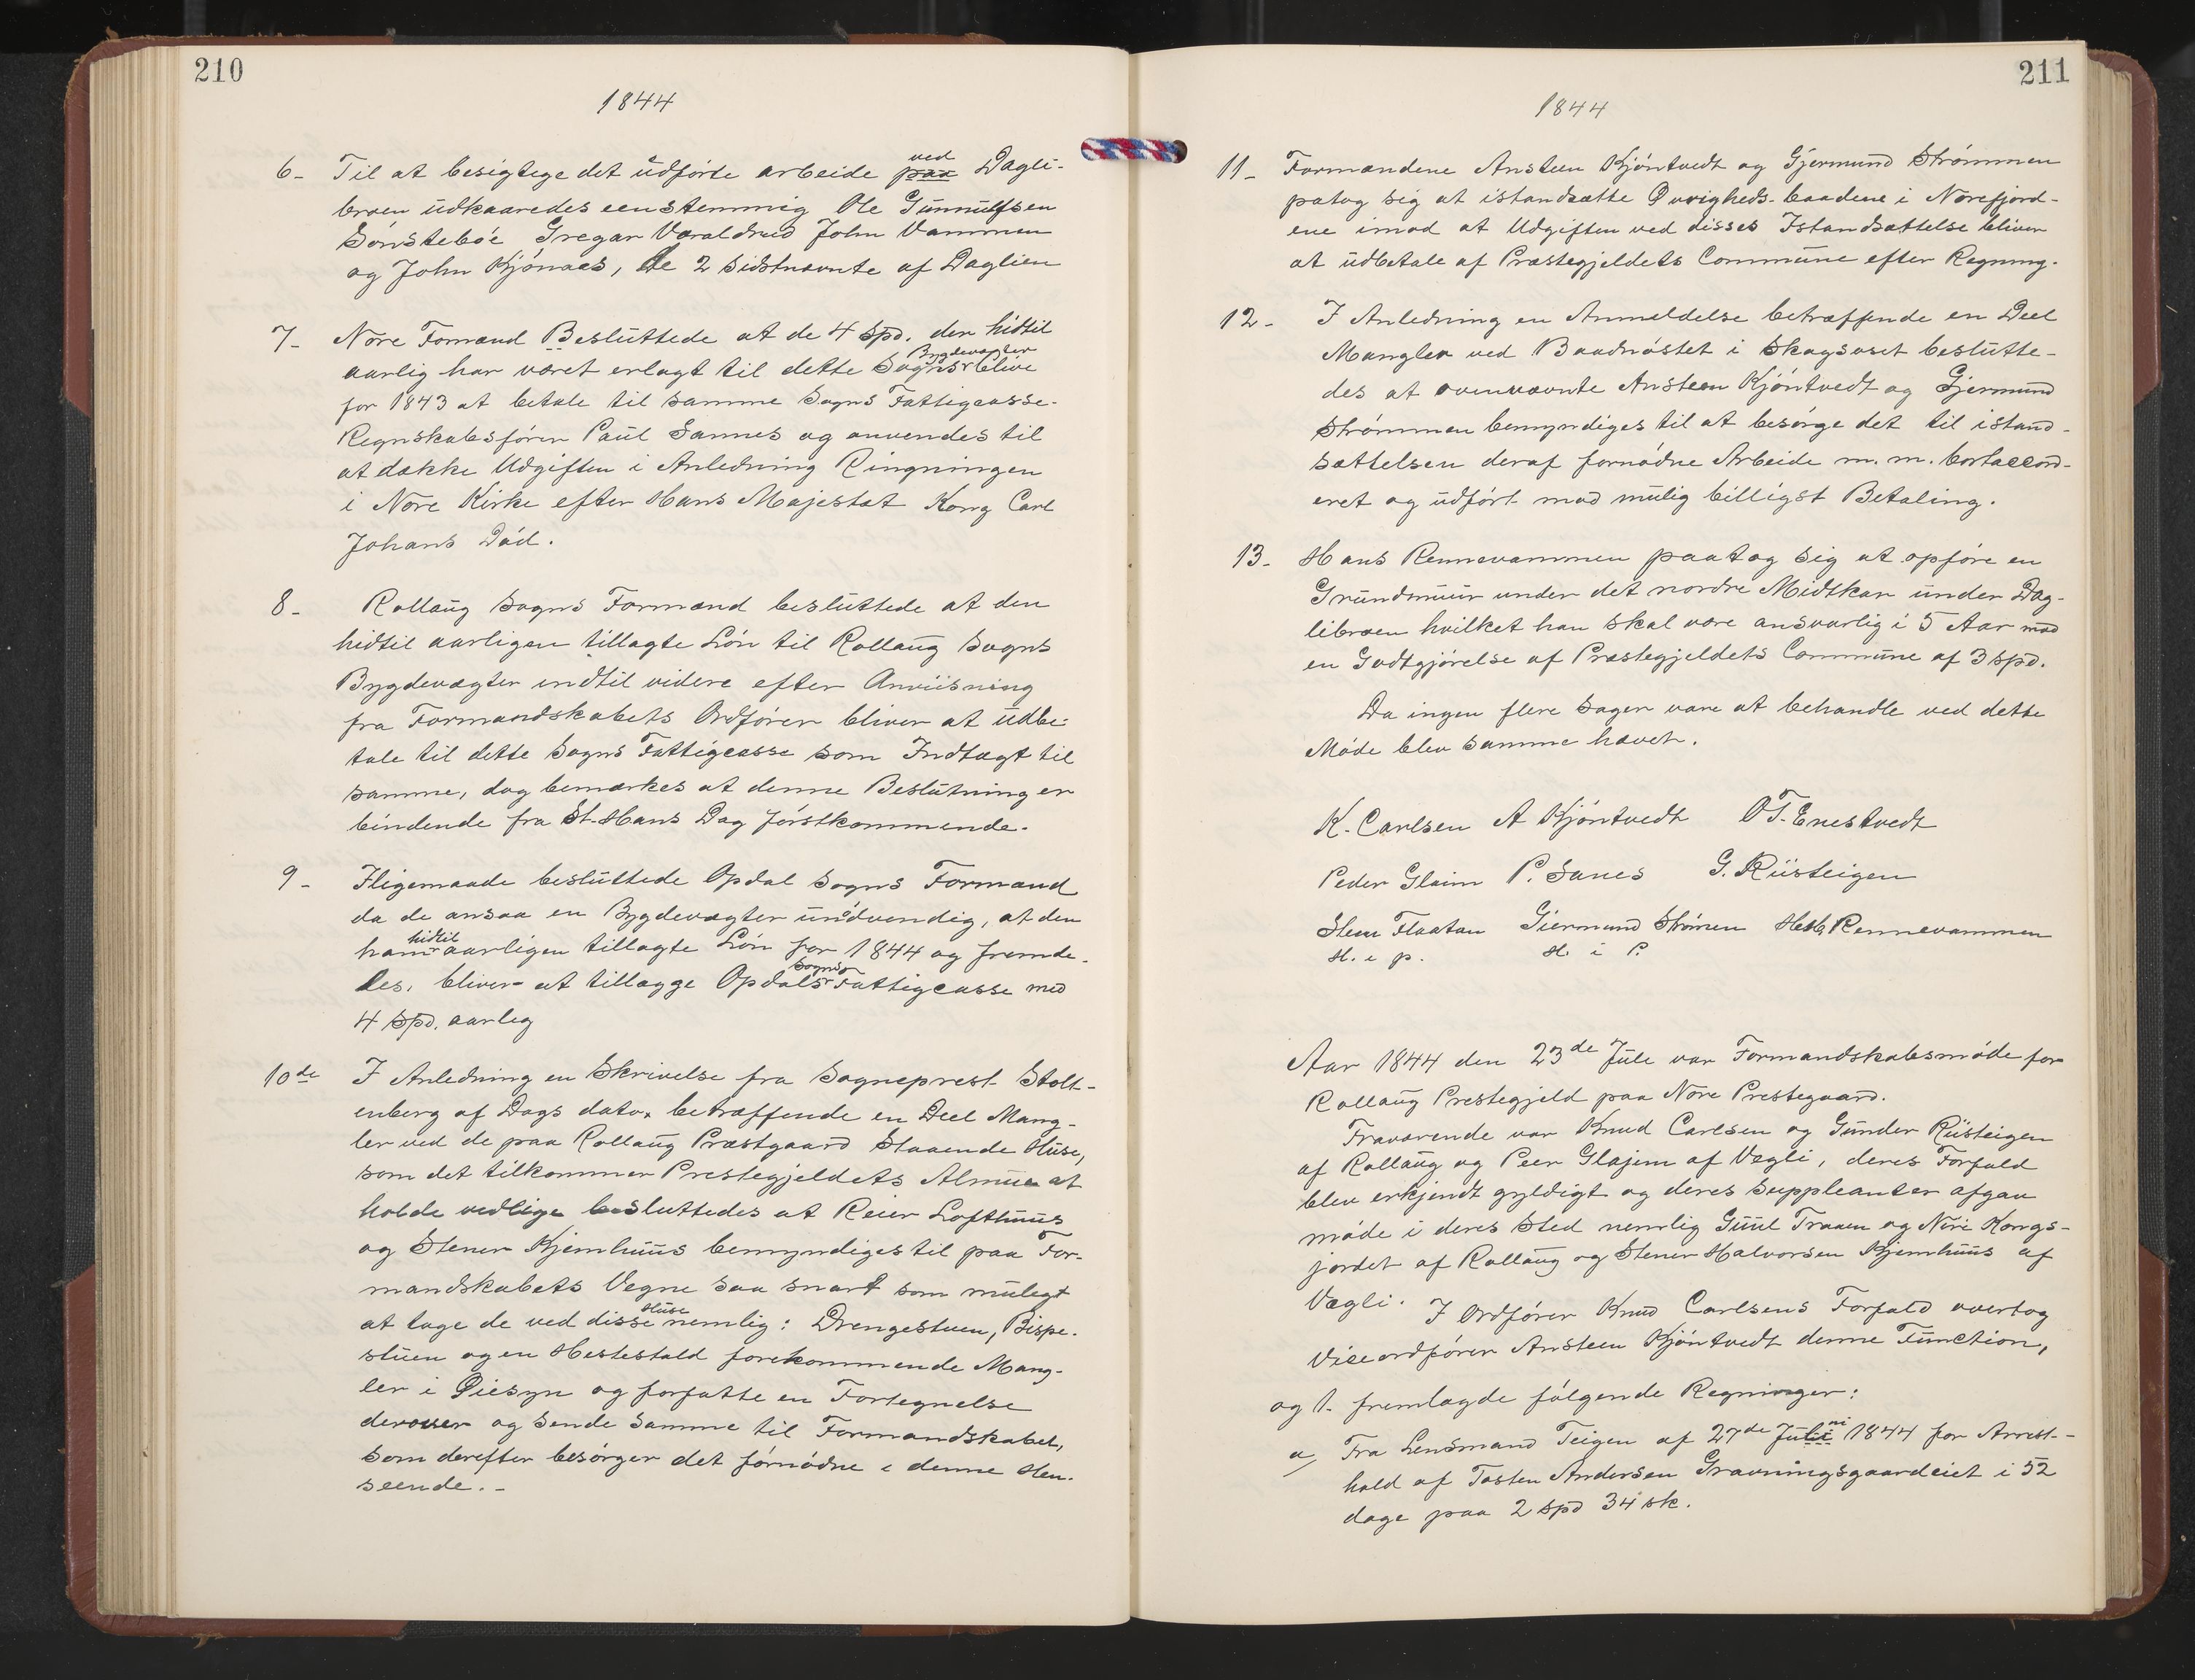 210
1844
6- Til at besigtige det udførte arbeide paa ved Dagli-
broen udkaaredes eenstemmig Ole Gunnulfsen
Sønstebøe Gregar Varaldrud John Vammen
og John Kjønaas, de 2 sidstnævnte af Daglien
7- Nore Formænd Besluttede at de 4 Spd. der hidtil
aarlig har været erlagt til dette Sogns Bygdevægter blive
for 1843 at betale til samme Sogns Fattigcasse-
Regnskabsfører Paul Sannes og anvendes til
at dække Udgiften i Anledning Ringningen
i Nore Kirke efter Hans Majestæt Kong Carl
Johans Død.
8- Rollaug Sogns Formænd besluttede at den
hidtil aarligen tillagte Løn til Rollaug Sogns
Bygdevægter indtil videre efter Anviisning
fra Formandskabets Ordfører bliver at udbe-
tale til dette Sogns Fattigcasse som Indtægt til
samme, dog bemærkes at denne Beslutning er
bindende fra St. Hans Dag førstkommende.
9- Iligemaade besluttede Opdal Sogns Formænd
da de ansaa en Bygdevægter unødvendig, at den
ham hidtil aarligen tillagte Løn for 1844 og fremde-
les, bliver at tillægge Opdals Sogns Fattigcasse med
4 Spd. aarleg
10de I Anledning en Skrivelse fra Sogneprest Stolt-
enberg af Dags dato, betræffende en Deel Mang-
ler ved de paa Rollaug Præstgaard Staaende Huse,
som det tilkommer Prestegjeldets Almue at
holde vedlige besluttedes at Reier Lofthuus
og Stener Kjemhuus bemyndiges til paa For-
mandskabets Vegne saa snart som mulegt
at tage de ved disse Huse nemlig: Drengestuen, Bispe-
stuen og en Hestestald forekommende Mang-
ler i Øiesyn og forfatte en Fortegnelse
derover og sende samme til Formandskabet,
som derefter besørger det fornødne i denne Hen-
seende.-
211
1844
11- Formændene Ansteen Kjøntvedt og Gjermund Strømmen
patog sig at istandsætte Øvrigheds-baadene i Norefjord-
ene imod at Udgiften ved disses Istandsættelse bliver
at udbetale af Præstegjeldets Commune efter Regning.
12- I Anledning en Anmeldelse betræffende en Deel
Mangler ved Baadnøstet i Skagsoset beslutte-
des at ovennævnte Ansteen Kjøntvedt og Gjermund
Strømmen bemyndiges til at besørge det til istand-
sættelsen deraf fornødne Arbeide m. m. bortaccord-
eret og udført mod mulig billigst Betaling.
13- Hans Rennevammen paatog sig at opføre en
Grundmuur under det nordre Midtkar under Dag-
libroen hvilket han skal være ansvarlig i 5 Aar mod
en Godtgjørelse af Præstegjeldets Commune af 3 spd.
Da ingen flere Sager vare at behandle ved dette
Møde blev samme hævet.
K. Carlsen A Kjøntvedt OT. Enestvedt
Peder Glaim P. Sanes G. Riisteigen
Sten Flaatan Giermund Strømen Rennevammen
H. i p. H. i P.
Aar 1844 den 23de Jule var Formandskabsmøde for
Rollaug Prestegjeld paa Nore Prestegaard.
Fraværende var Knud Carlsen og Gunder Riisteigen
af Rollaug og Peer Glajem af Vægli, deres Forfald
blev erkjendt gyldigt og deres Suppleanter afgav
møde i deres Sted nemlig Guul Traaen og Niri Kongs-
jordet af Rollaug og Stener Halvorsen Kjemhuus af
Vægli. I Ordfører Knud Carlsens Forfald overtog
Viceordfører Ansteen Kjøntvedt denne Function,
og 1. fremlagde følgende Regninger:
a, Fra Lensmand Teigen af 27de Julii ni 1844 for Arrest-
hold af Tosten Andersen Gravningsgaardeiet i 52
dage paa 2 spd 34 sk.